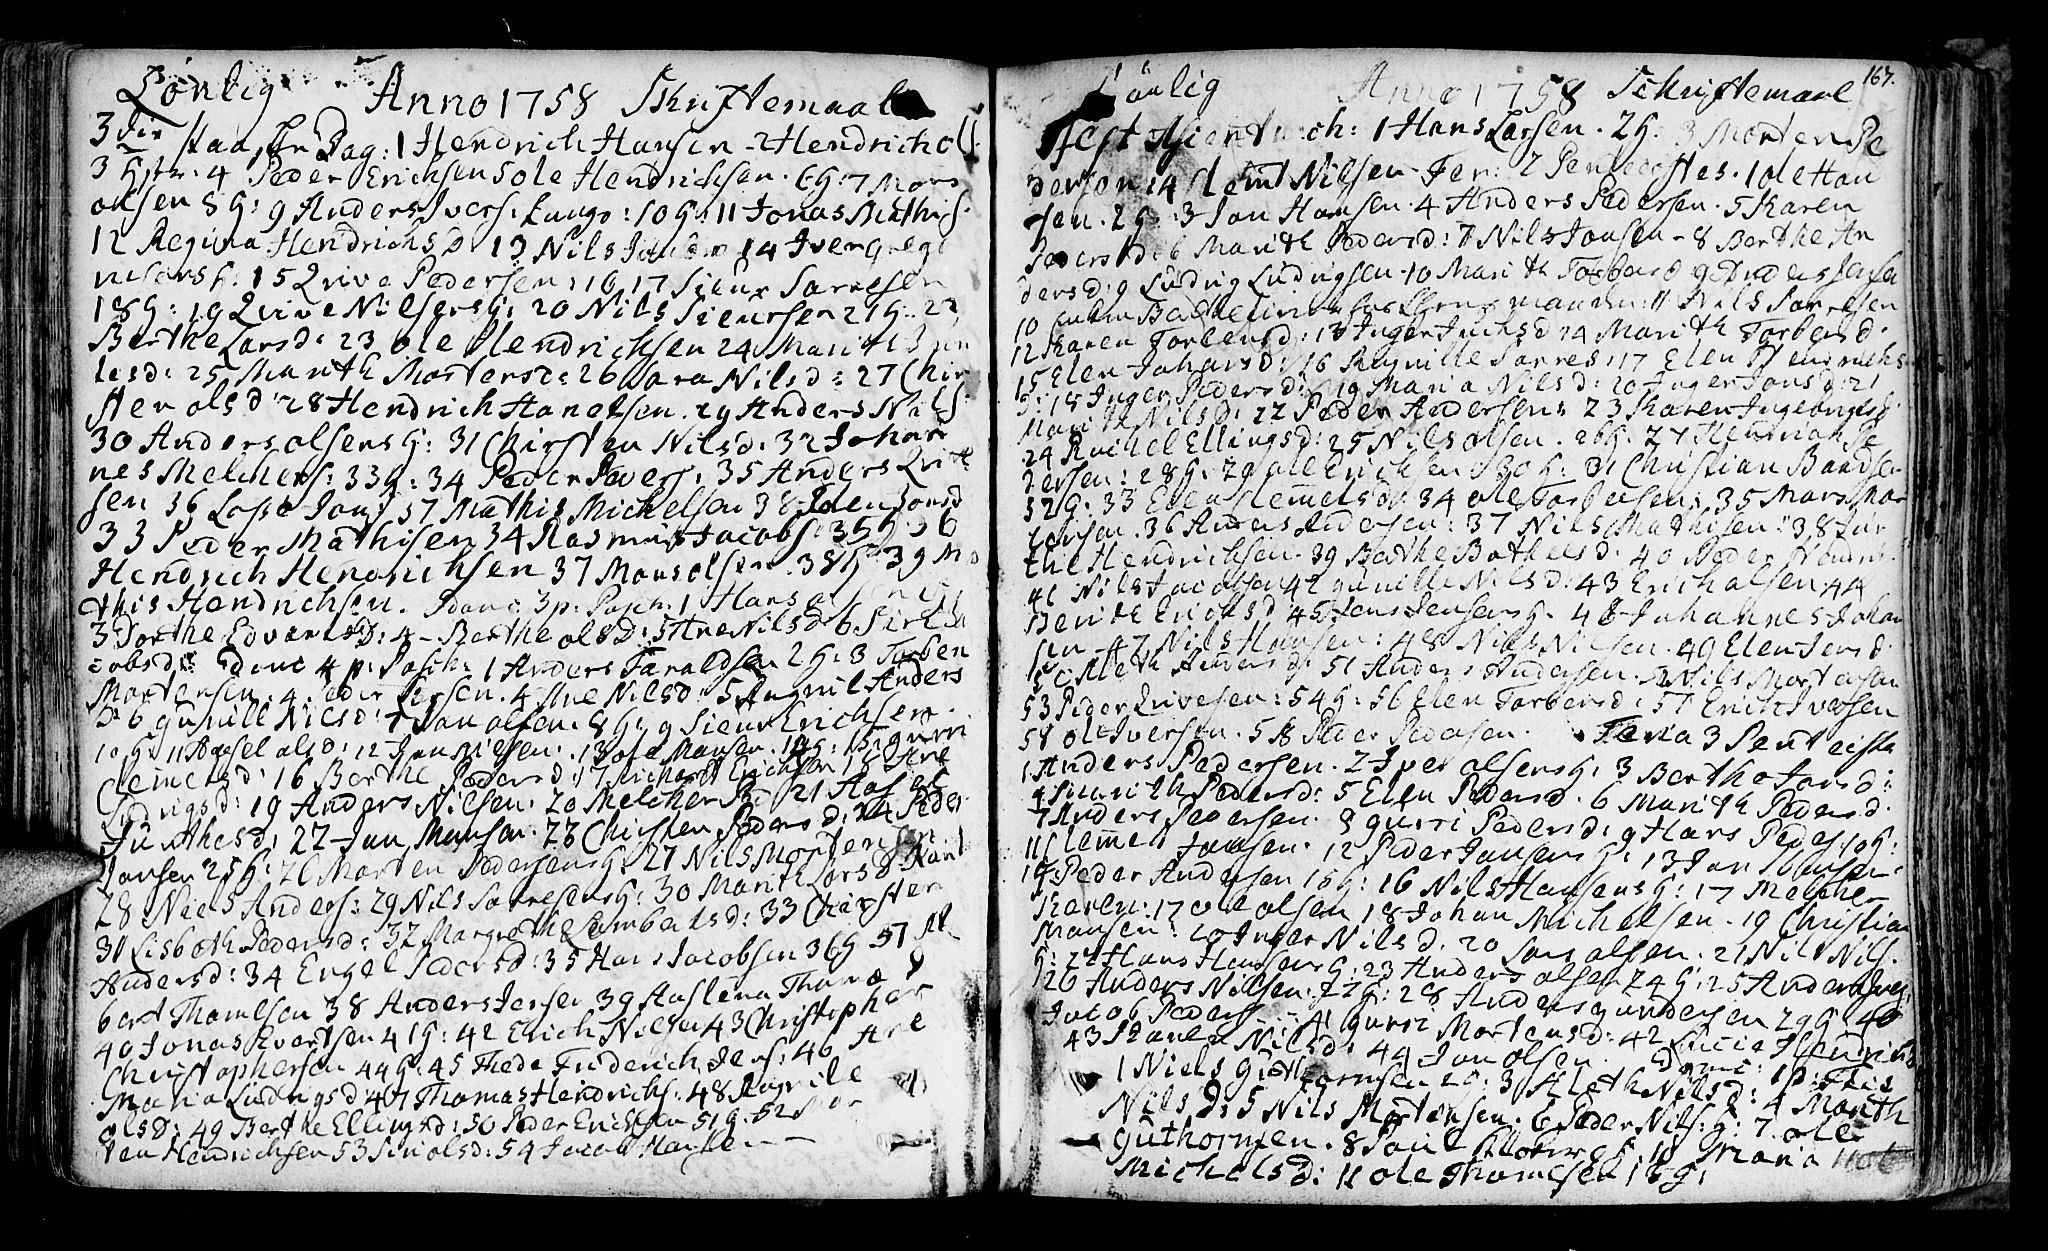 Lønlig Anno 1758 Skriftemaal
3die Paaske Dag: 1 Hendrich Hansen - 2 Hendrich Ols
3 H: 4 Peder Erichsen 5 ole Hendrichsen. 6 H: 7 Mons
olsen 8 H: 9 Anders Ivers: Lango: 10 H: 11 Jonas Mathis
12 Regina Hendrichsd 13 Nils 14 Iver Grego
risens H: 15 Qvive Pedersen: 16 17 Siur Sarresen
18 H: 19 Qvive Nilsens H: 20 Nils Siurssen 21 H: 22
Berthe Larsd: 23 ole Hendrichsen 24 Marith
lesd: 25 Marith Mortensd: 26 Sara Nilsd: 27 Chir
sten olsd: 28 Hendrich Hanessen. 29 Anders Nils
30 Anders olsens H: 31 Chirsten Nilsd: 32 Johan
nes Melchers: 33 H: 34 Peder Ivers: 35 Anders Qvive
sen 36 Lasse Jons 37 Mathis Michelsen 38 Elen Jonsd
33 Peder Mathisen 34 Rasmus Jacobs: 35 H 36
Hendrich Hendrichsen 37 Mons olsen. 38 H: 39 Ma
this Hendrichsen. Domc 3 p: Pasch: 1 Hans
3 Dorthe Edvardsd: 4 - Berthe olsd: 5 Ane Nilsd 6 Siri Ja
cobsd: Domc 4 p: Pasch: 1 Anders Taraldsen 2 H: 3 Torben
Mortensen. 4 Peder Larsen. 4 Ane Nilsd 5 Magnil Anders
d 6 gunill Nilsd: 7 Jon olsen. 8 H: 9 Siur Erichsen.
10 H: 11 Appel olsd: 12 Jon Nilsen: 13 ole Monsen. 14 H: 15 gurri
Clemetsd: 16 Berthe Pedersd: 17 Richart Erichsen 18 Ane
Ludvigsd: 19 Anders Nilsen: 20 Melcher 21
Juthesd: 22 Jon Monsen. 23 Chirsten Pedersd: 24 Peder
Jonsen 25 H: 26 Morten Pedersens H: 27 Nils Mortensen
28 Niels Anders: 29 Nils Sarresens H: 30 Marith Larsd
31 Lisbeth Pedersd: 32 Margrethe Lambertsd: 33 Chirsten
Andersd: 34 Engel Pedersd: 35 Hans Jacobsen 36 H 37 Al
bert Thomesen 38 Anders Jensen 39 Thom
40 Jonas Evertsen 41 H: 42 Erich Nilsen 43 Christopher
Christophersen 44 H: 45 Thede Friderich Jens: 46 Ane
Maria Ludvigsd 47 Thomas Hendrichs: 48 Ragnile
olsd: 49 Berthe Ellingsd: 50 Peder Erichsen 51 H. 52
ten Hendrichsen 53 Siri olsd: 54 Jacob Hansen
Lønlig Anno 1758 Schriftemaal 167.
Fest 1 Hans Larsen. 2 H: 3 Morten Pe
dersen: 4 Klemet Nilsen - Fer: 2 Pentecostes. 1 ole Han
sen. 2 H: 3 Jon Hansen. 4 Anders Pedersen. 5 Karen
Pedersd: 6 Marith Pedersd: 7 Nils Jonsen - 8 Berthe An
dersd: 9 Ludvig Ludvigsen - 10 Marith Torbensd 9 Anders Jensen
10 11 Nils Sarresen
12 Karen Torbensd: 13 Inger Juthsd 14 Marith Torbensd.
15 Elen Johansd: 16 Ragnille Sarres: 17 Elen Hendrichs
d: 18 Inger Pedersd: 19 Maria Nilsd: 20 Inger Jonsd: 21
Marith Nilsd: 22 Peder Andersen: 23 Karen Ingebrigtsd
24 Rachel Ellingsd: 25 Nils olsen. 26 H. 27 Hendrich Pe
dersen: 28 H: 29 ole Erichsen 30 H: 31 Christian Baardsen
32 H: 33 Elen Clemmetsd: 34 ole Torbensen: 35 Mons Mor
tensen. 36 Anders Pedersen: 37 Nils Mathisen: 38 Jur
the Hendrichsen. 39 Berthe Bothelsd: 40 Peder Hendrich
41 Nils Jacobsen 42 gunille Nilsd: 43 Erich olsen 44
Berite Erichsd 45 Jens Jensens H. 46 Johannes Johan
sen 47 Nils Hansen: 48 Niels Nilsen. 49 Elen Jensd.
50 Aleth Andersd: 51 Anders Andersen. 52 Nils Mortensen
53 Peder Qvivesen: 54 H: 56 Elen Torbensd: 57 Erich Iversen
58 ole Iversen. 58 Peder Pedersen. Feria 3 Pentecost:
1 Anders Pedersen. 2 Iver olsens H: 3 Berthe Jonsd:
4 Marith Pedersd: 5 Elen Pedersd. 6 Marith Pedersd.
7 Anders Pedersen. 8 gurri Pedersd: 9 Hans Peders 10 H:
11 Clemmet Jonsen. 12 Peder Jonsens H: 13 Jon Monsen:
14 Peder Andersen 15 H: 16 Nils Hansens H: 17 Melcher
Karen: 17 ole olsen 18 Johan Michelsen. 19 Christian
Monsen: 20 Inger Nilsd. 20 Jon olsen. 21 Nils Nils.
H: 22 Hans Hansens H: 23 Anders olsen 24 H: 25 Anders Ivers:
26 Anders Nilsen: 27 H: 28 Anders gundersen 29 H: 40
Jacob Peders 41 gurri Mortensd: 42 Hendrichs
43 Karen Nilsd: 44 Jon olsen. Domc: 1 p: Tris
1 Niels Guthormsen 2 H: 3 Aleth Nilsd: 4 Marith
Nilsd: 5 Nils Mortensen. 6 Peder Nils: H: 7. ole
Guthormsen. 8 Poul 10 Maria
Michelsd: 11 ole Thomesen 12 H: